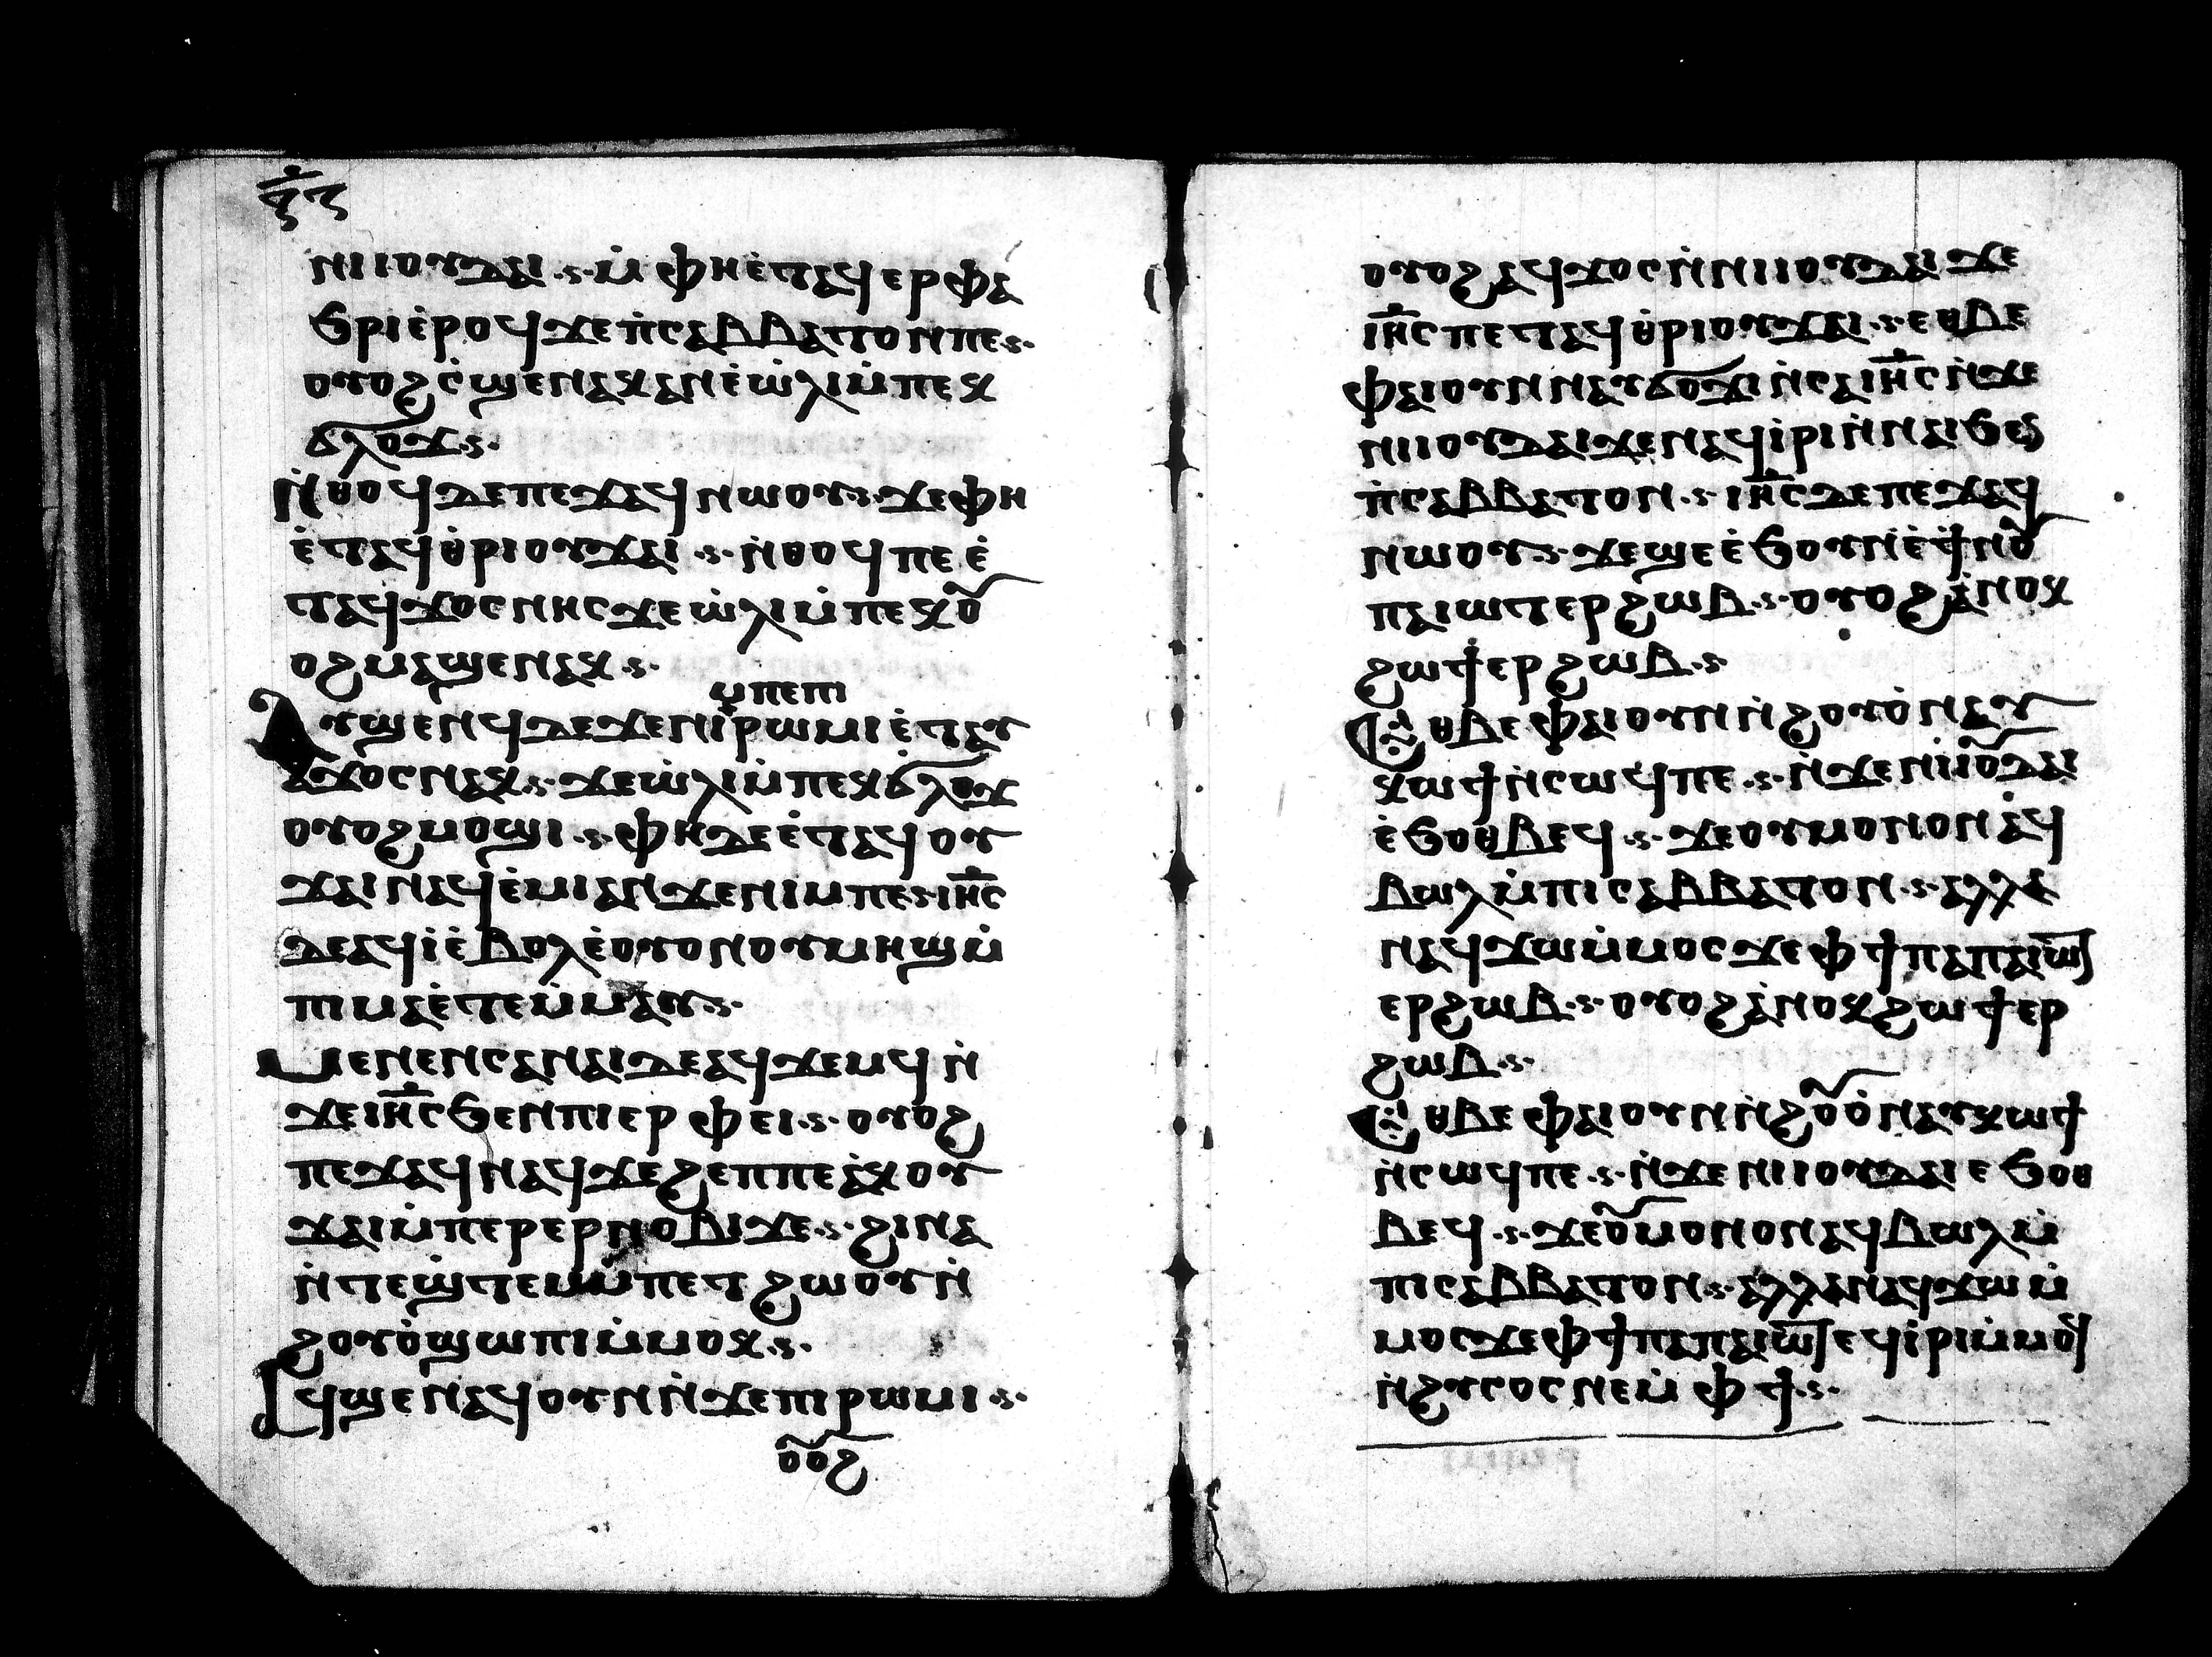 ⲛⲓⲓⲟⲩⲇⲁⲓ ⲙ̇ⲫⲏⲉ̇ⲧⲁϥⲉⲣⲫⲁ
ϧⲣⲓⲉ̇ⲣⲟϥϫⲉⲡ̇ⲥⲁⲃⲃⲁⲧⲟⲛⲡⲉ
ⲟⲩⲟϩⲥ̇ϣⲉⲛⲁⲕⲁⲛⲉ̇ⲱ̇ⲗⲓⲙ̇ⲡⲉⲕ
ϭⲗⲟϫ
ⲛ̇ⲑⲟϥⲇⲉⲡⲉϫⲁϥⲛⲱⲟⲩ ϫⲉⲫⲏ
ⲉ̇ⲧⲁϥⲑ̇ⲣⲓⲟⲩϫⲁⲓ ⲛ̇ⲑⲟϥⲡⲉⲉ̇
ⲧⲁϥϫⲟⲥⲛⲏⲥϫⲉⲱ̇ⲗⲓⲙ̇ⲡⲉⲕⲟ̅
ⲟϩⲙⲁϣⲉⲛⲁⲕ
ⲙ̇ⲡⲉⲡⲓ
ⲁⲩϣⲉⲛϥⲇⲉϫⲉⲛⲓⲣⲱⲙⲓⲉ̇ⲧⲁⲩ
ϫⲟⲥⲛⲁⲕ ϫⲉⲱ̇ⲗⲓⲙ̇ⲡⲉⲕϭⲗⲟϫ
ⲟⲩⲟϩⲙⲟϣⲓ ⲫⲏⲇⲉⲉ̇ⲧⲁϥⲟⲩ
ϫⲁⲓⲛⲁϥⲉ̇ⲙⲓⲁⲛϫⲉⲛⲓⲙⲡⲉ ⲓⲏ̅ⲥ
ⲇⲉⲁϥⲓ̇ⲉ̇ⲃⲟⲗⲉ̇ⲟⲩⲟⲛⲟⲩⲙⲏϣⲙ̇
ⲡⲓⲙⲁⲉ̇ⲧⲉⲙ̇ⲙⲁⲩ
ⲙⲉⲛⲉⲛⲥⲁⲛⲁⲓⲇⲉⲁϥϫⲉⲙϥⲛ̇
ϫⲉⲓⲏ̅ⲥϧⲉⲛⲡⲓⲉⲣⲫⲉⲓ ⲟⲩⲟϩ
ⲡⲉϫⲁϥⲛⲁϥϫⲉϩⲉⲡⲡⲉⲁ̇ⲕⲟⲩ
ϫⲁⲓⲙ̇ⲡⲉⲣⲉⲣⲛⲟⲃⲓϫⲉ ϩⲓⲛⲁ
ⲛ̇ⲧⲉϣ̇ⲧⲉⲙⲙ̇ⲡⲉⲧϩⲱⲟⲩⲛ̇
ϩⲟⲩⲟ̇ϣⲱⲡⲓⲙ̇ⲙⲟⲕ
ⲁϥϣⲉⲛⲁϥⲟⲩⲛⲛ̇ϫⲉⲡⲓⲣⲱⲙⲓ
ⲟ̅ⲟϩ
ⲟⲩⲟϩⲁϥϫⲟⲥⲛ̇ⲛⲓⲓⲟⲩⲇⲁⲓϫⲉ
ⲓⲏ̅ⲥⲡⲉⲧⲁϥⲑ̇ⲣⲓⲟⲩϫⲁⲓ ⲉⲑⲃⲉ
ⲫⲁⲓⲟⲩⲛⲛⲁⲩϭⲟϫⲓⲛ̇ⲥⲁⲓⲏ̅ⲥⲛ̇ϫⲉ
ⲛⲓⲓⲟⲩⲇⲁⲓϫⲉⲛⲁϥⲓ̇ⲣⲓⲛ̇ⲛⲁⲓϧⲉⲛ
ⲡ̇ⲥⲁⲃⲃⲁⲧⲟⲛ ⲓⲏ̅ⲥⲇⲉⲡⲉϫⲁϥ
ⲛⲱⲟⲩ ϫⲉϣⲉⲉ̇ϧⲟⲩⲛⲉ̇ϯⲛⲟ̅
ⲡⲁⲓⲱⲧⲉⲣϩⲱⲃ ⲟⲩⲟϩⲁ̇ⲛⲟⲕ
ϩⲱϯⲉⲣϩⲱⲃ
ⲉⲑⲃⲉⲫⲁⲓⲟⲩⲛⲛ̇ϩⲟⲩⲟ̇ⲛⲁⲩ
ⲕⲱϯⲛ̇ⲥⲱϥⲡⲉ ⲛ̇ϫⲉⲛⲓⲓⲟ̅ⲇⲁⲓ
ⲉ̇ϧⲟⲑⲃⲉϥ ϫⲉⲟⲩⲙⲟⲛⲟⲛⲁ̇ϥ
ⲃⲱⲗⲙ̇ⲡⲓⲥⲁⲃⲃⲁⲧⲟⲛ ⲁⲗⲗⲁ
ⲛⲁϥϫⲱⲙ̇ⲙⲟⲥϫⲉⲫϯⲡⲁⲡⲁⲓⲱ̅ⲧ
ⲉⲣϩⲱⲃ ⲟⲩⲟϩⲁ̇ⲛⲟⲕϩⲱϯⲉⲣ
ϩⲱⲃ
ⲉⲑⲃⲉⲫⲁⲓⲟⲩⲛⲛ̇ϩⲟ̅ⲟ̇ⲛⲁⲩⲕⲱϯ
ⲛ̇ⲥⲱϥⲡⲉ ⲛ̇ϫⲉⲛⲓⲓⲟⲩⲇⲁⲓⲉϧⲟⲑ
ⲃⲉϥ ϫⲉⲟ̅ⲙⲟⲛⲟⲛⲁϥⲃⲱⲗⲙ̇
ⲡⲓⲥⲁⲃⲃⲁⲧⲟⲛ ⲁⲗⲗⲁⲛⲁϥϫⲱⲙ̇
ⲙⲟⲥϫⲉⲫϯⲡⲁⲡⲁⲓⲱ̅ⲧⲉϥⲓ̇ⲣⲓⲙ̇ⲙⲟϥ
ⲛ̇ϩⲩⲥⲟⲥⲛⲉⲙ̇ⲫϯ